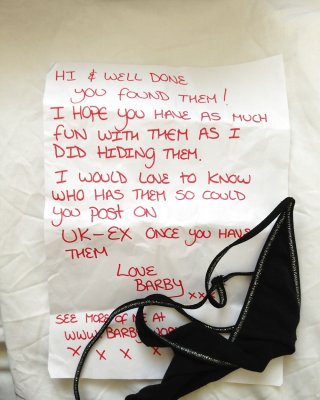 HI & WELL DONE
YOU FOUND THEM!
I HOPE YOU HAVE AS MUCH
FUN WITH THEM AS I
DID HIDING THEM.
I WOULD LOVE TO KNOW
WHO HAS THEM SO COULD
YOU POST ON
UK-EX ONCE YOU HAVE
THEM
LOVE
BARBY
xxx
SEE MORE OF ME AT
WWW.BARBY
X X X X